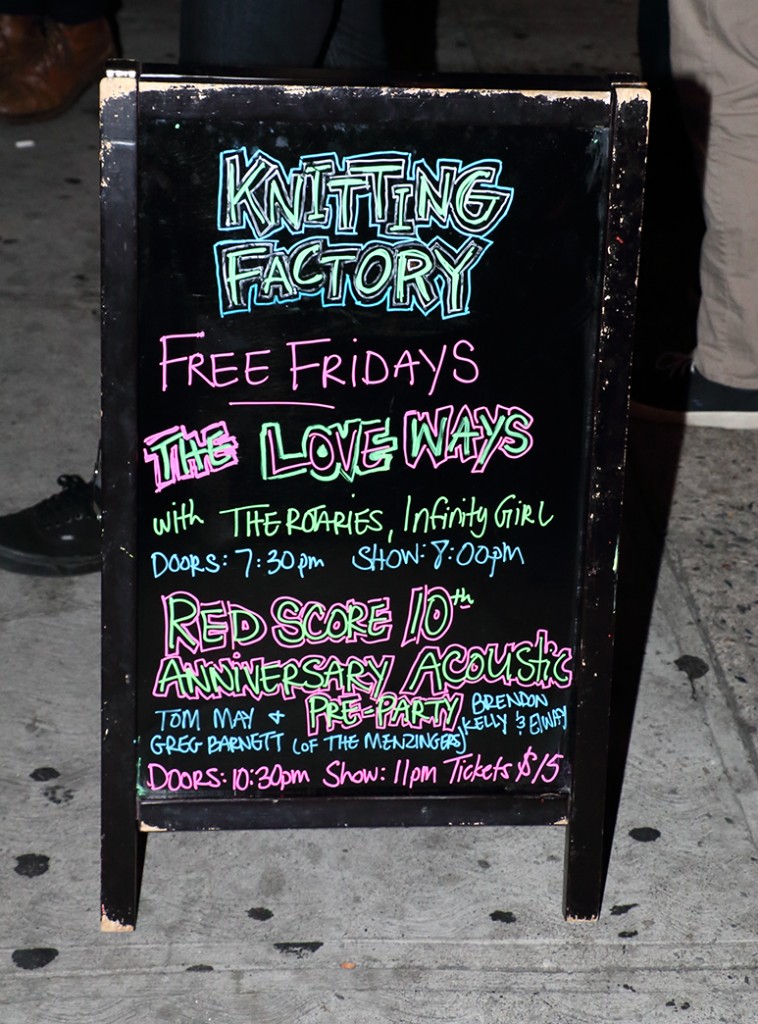 KNITTING
FACTORY
FREE FRIDAYS
THE LOVE WAYS
with THE ROTARIES, Infinity GiRL
DOORS: 7:30pm SHOW: 8:00pm
RED SCORE 10th
ANNIVERSARY ACOUSTIC
PRE-PARTY
TOM MAY &
GREG BARNETT (OF THE MENZINGERS)
BRENDON
KELLY & ElWAY
DOORS: 10:30pm Show: 11pm Tickets $15